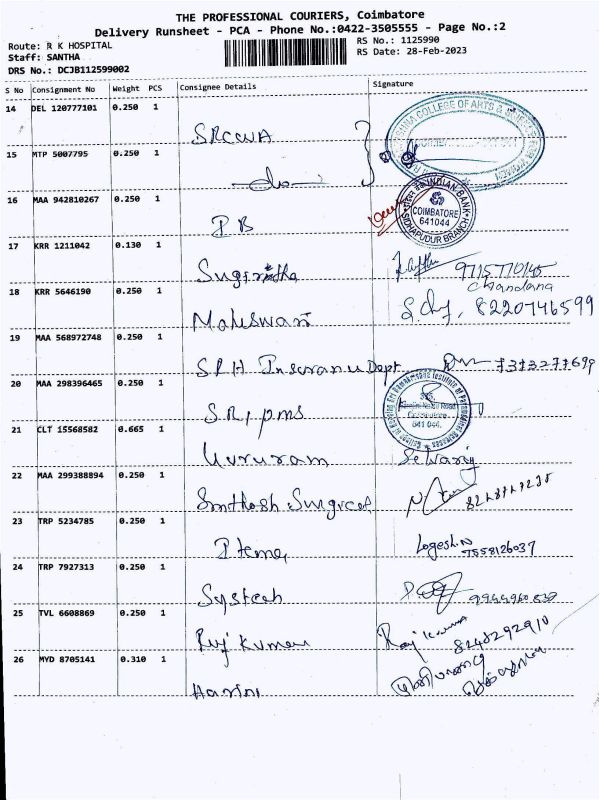 THE PROFESSIONAL COURIERS, Coimbatore
Delivery Runsheet - PCA - Phone No.:0422-3505555 - Page No.:2
Route: R K HOSPITAL
RS No.: 1125990
Staff: SANTHA
RS Date: 28-Feb-2023
DRS No.: DCJB112599002
S No Consignment No Weight PCS Consignee Details Signature
14 DEL 120777101 0.250 1 SRCWA
15 MTP 5007795 0.250 1 -do-
16 MAA 942810267 0.250 1 IB INDIAN BANK COIMBATORE 641044 SIDHAPUDUR BRANCH
17 KRR 1211042 0.130 1 Sugirtha 9715770145
Chandana
18 KRR 5646190 0.250 1 Maheswari 8220746599
19 MAA 568972748 0.250 1 SRH Insurance Dept
20 MAA 298396465 0.250 1 SRIPMS
21 CLT 15568582 0.665 1 Gururam Selvaraj
22 MAA 299388894 0.250 1 Santhosh Surgical
23 TRP 5234785 0.250 1 Logesh.N
7558126037
24 TRP 7927313 0.250 1 Systech
25 TVL 6608869 0.250 1 Raj Kumar Raj Kumar
8248292910
26 MYD 8705141 0.310 1 Harini